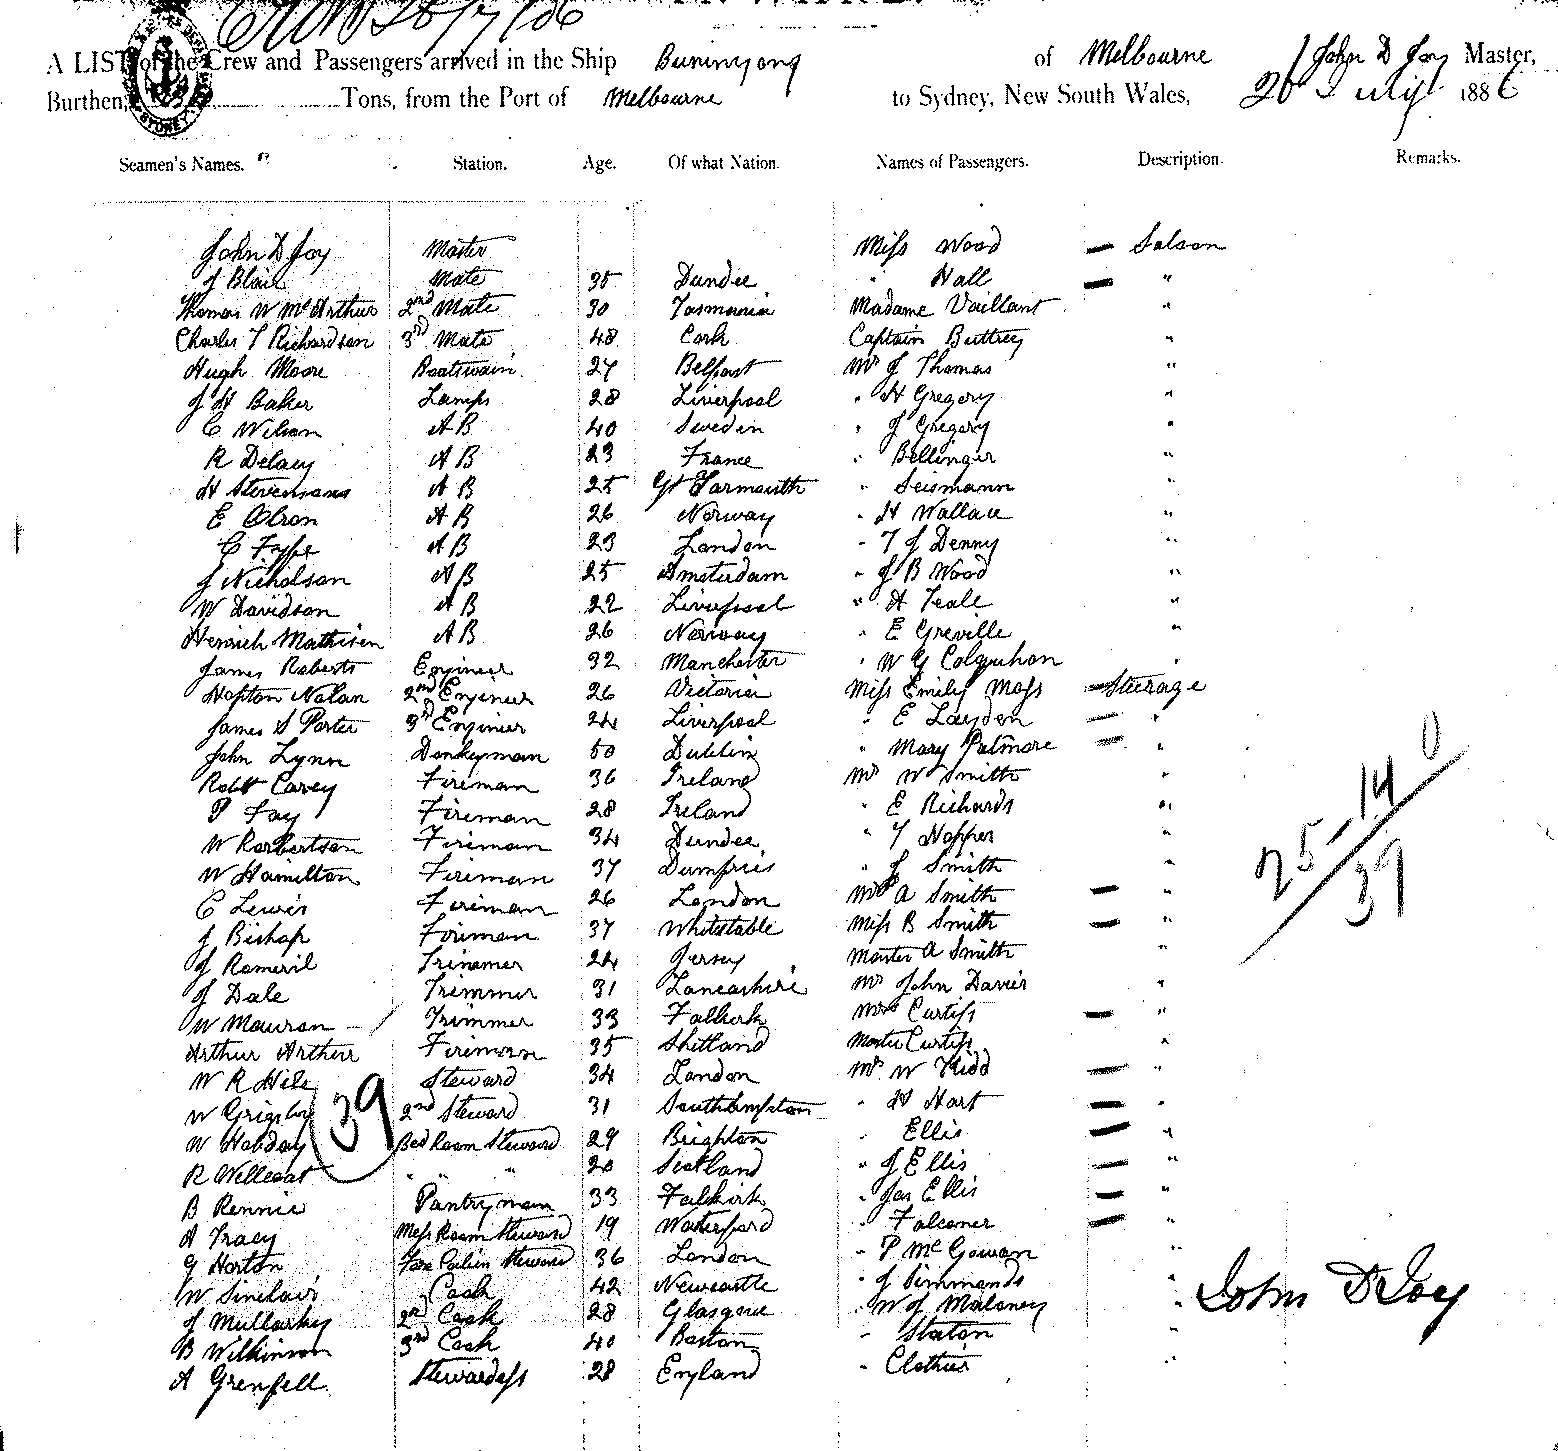 Crew 20/7/86
A LIST of the Crew and Passengers arrived in the Ship Buninyong of Melbourne John D Joy Master,
Burthen, Tons, from the Port of Melbourne to Sydney, New South Wales, 20 July 1886
SYDNEY
Seamen's Names. Station. Age. Of what Nation. Names of Passengers. Description. Remarks.
John D Joy Master Miss Wood — Saloon
J Blair Mate 35 Dundee " Hall — "
Thomas W McArthur 2nd Mate 30 Tasmania Madame Vaillant "
Charles T Richardson 3rd Mate 48 Cork Captain Buttrey "
Hugh Moore Boatswain 27 Belfast Mr J Thomas "
J H Baker Lamps 28 Liverpool " H Gregory "
C Wilson A B 40 Sweden " J Gregory "
R Delacy A B 23 France " Bellinger "
H Stevensons A B 25 Gt Yarmouth " Seismann "
E Olson A B 26 Norway " H Wallace "
C Fyffe A B 23 London " T J Denny "
J Nicholson A B 25 Amsterdam " J B Wood "
W Davidson A B 22 Liverpool " A Teale "
Henrich Mathisen A B 26 Norway " E Greville "
James Roberts Engineer 32 Manchester " W G Colquhon "
Hopton Nolan 2nd Engineer 26 Victoria Miss Emily Moss — Steerage
James S Porter 3rd Engineer 24 Liverpool " E Layden — "
John Lynn Donkeyman 50 Dublin " Mary Patmore — "
Robt Carey Fireman 36 Ireland Mr W Smith "
P Fay Fireman 28 Ireland " E Richards "
W Robertson Fireman 34 Dundee " T Hopper "
W Hamilton Fireman 37 Dumfries " J Smith "
C Lewis Fireman 26 London Mrs A Smith — "
J Bishop Foreman 37 Whitstable Miss B Smith — "
J Romeril Trimmer 24 Jersey Master A Smith "
J Dale Trimmer 31 Lancashire Mr John Davies "
W Mowson Trimmer 33 Falkirk Mrs Curtiss — "
Arthur Arthur Fireman 35 Shetland Master Curtiss "
W R Hile Steward 34 London Mr W Kidd — "
W Grigsby 2nd Steward 31 Southampton " H Hart — "
W Hobday Bed Room Steward 29 Brighton " Ellis — "
R Wellesat " " 20 Scotland " J Ellis — "
B Rennie Pantryman 33 Falkirk " Jas Ellis — "
A Tracy Mess Room Steward 19 Waterford " Falconer — "
G Horton Fore Cabin Steward 36 London " P McGowan "
W Sinclair Cook 42 Newcastle " J Simmonds "
J Mullarky 2nd Cook 28 Glasgow " W J Maloney "
B Wilkinson 3rd Cook 40 Boston " Staton "
A Grenfell Stewardess 28 England " Clothier "
39
25 14 0
39
John D Joy